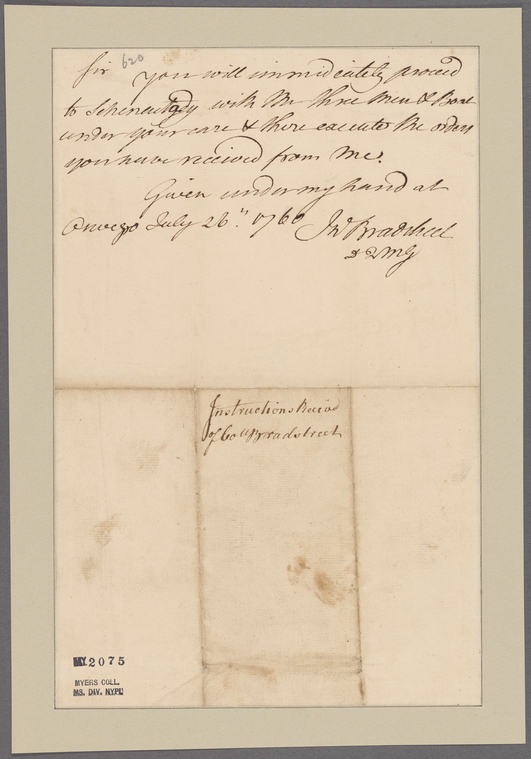 620
Sir you will immidiately proceed
to Schenectady with the three men & Boat
under your care & there execute the orders
you have received from me.
Given under my hand at
Oswego July 26th 1760
Jno Bradstreet
D Q M G
Instructions Receivd
of Coll Bradstreet
MY. 2075
MYERS COLL.
MS. DIV. N.Y.P.L.